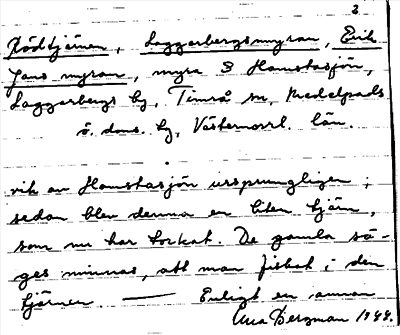 2
Rödtjärnen, Laggarbergsmyran, Erik
Jans myran, myra S Hamstasjön,
Laggarbergs by, Timrå sn, Medelpads
ö. doms. hg, Västernorrl. län.
vik av Hamstasjön ursprungligen;
sedan blev denna en liten tjärn,
som nu har torkat. De gamla sä-
ges minnas, att man fiskat i den
tjärnen — Enligt en annan
Bergman 1944.